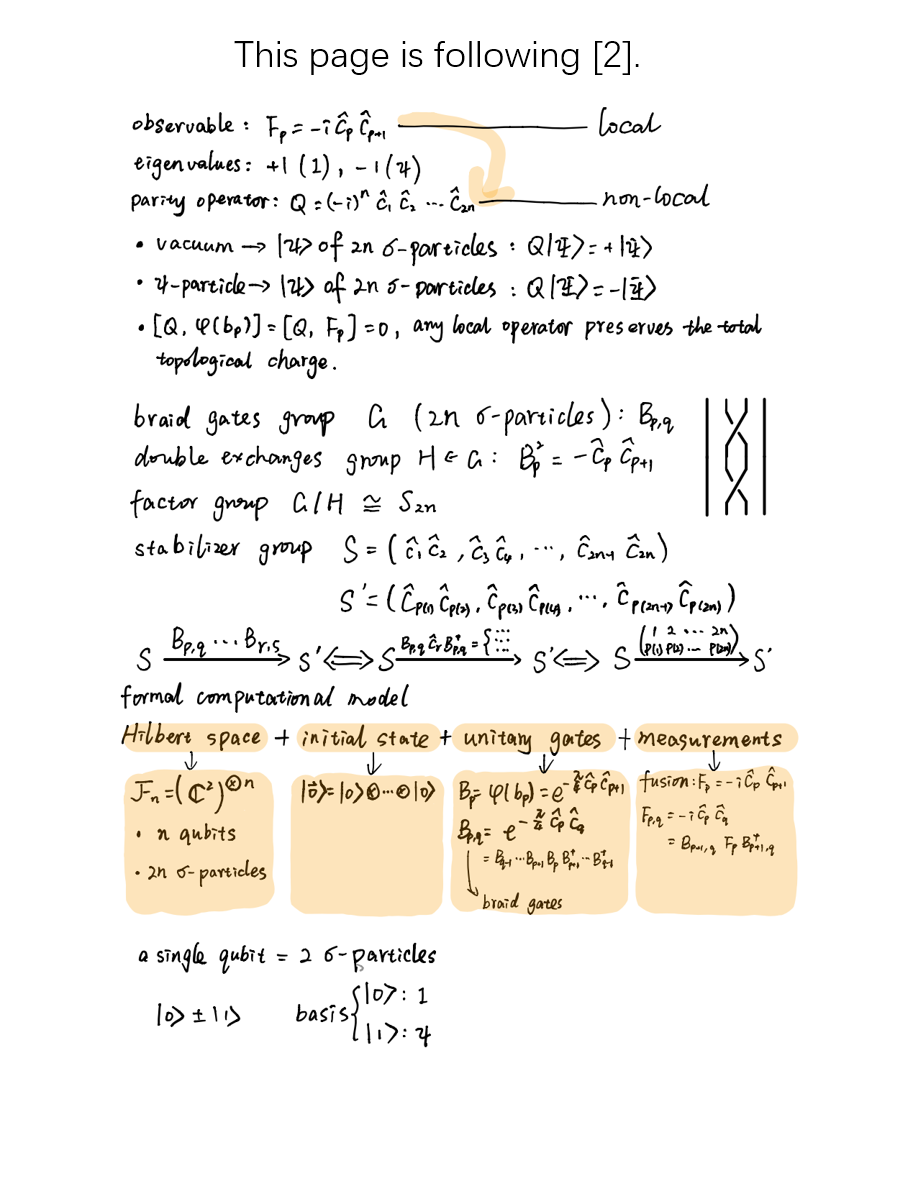 This page is following [2].
observable : F_p = -i ĉ_p ĉ_{p+1} — local
eigenvalues: +1 (1) , -1 (ψ)
parity operator: Q = (-i)^n ĉ_1 ĉ_2 ⋯ ĉ_{2n} — non-local
• vacuum → |ψ⟩ of 2n σ-particles : Q|Ψ⟩ = +|Ψ⟩
• ψ-particle → |ψ⟩ of 2n σ-particles : Q|Ψ⟩ = -|Ψ⟩
• [Q, φ(b_p)] = [Q, F_p] = 0, any local operator preserves the total
topological charge.
braid gates group G (2n σ-particles) : B_{p,q}
double exchanges group H ∈ G : B_p^2 = -ĉ_p ĉ_{p+1}
factor group G/H ≅ S_{2n}
stabilizer group S = ( ĉ_1 ĉ_2 , ĉ_3 ĉ_4 , ⋯ , ĉ_{2n-1} ĉ_{2n} )
S' = ( ĉ_{p(1)} ĉ_{p(2)} , ĉ_{p(3)} ĉ_{p(4)} , ⋯ , ĉ_{p(2n-1)} ĉ_{p(2n)} )
S —B_{p,q} ⋯ B_{r,s}→ S' ⟺ S —B_{p,q} ĉ_r B_{p,q}^† = {⋯→ S' ⟺ S —(1 2 ⋯ 2n / p(1) p(2) ⋯ p(2n))→ S'
formal computational model
Hilbert space + initial state + unitary gates + measurements
F_n = (ℂ^2)^{⊗n}
• n qubits
• 2n σ-particles
|0⃗⟩ = |0⟩ ⊗ ⋯ ⊗ |0⟩
B_p = φ(b_p) = e^{-π/4 ĉ_p ĉ_{p+1}}
B_{p,q} = e^{-π/4 ĉ_p ĉ_q}
= B_{q-1} ⋯ B_{p+1} B_p B_{p+1}^† ⋯ B_{q-1}^†
braid gates
fusion : F_p = -i ĉ_p ĉ_{p+1}
F_{p,q} = -i ĉ_p ĉ_q
= B_{p+1,q} F_p B_{p+1,q}^†
a single qubit = 2 σ-particles
|0⟩ ± |1⟩ basis { |0⟩ : 1
|1⟩ : ψ